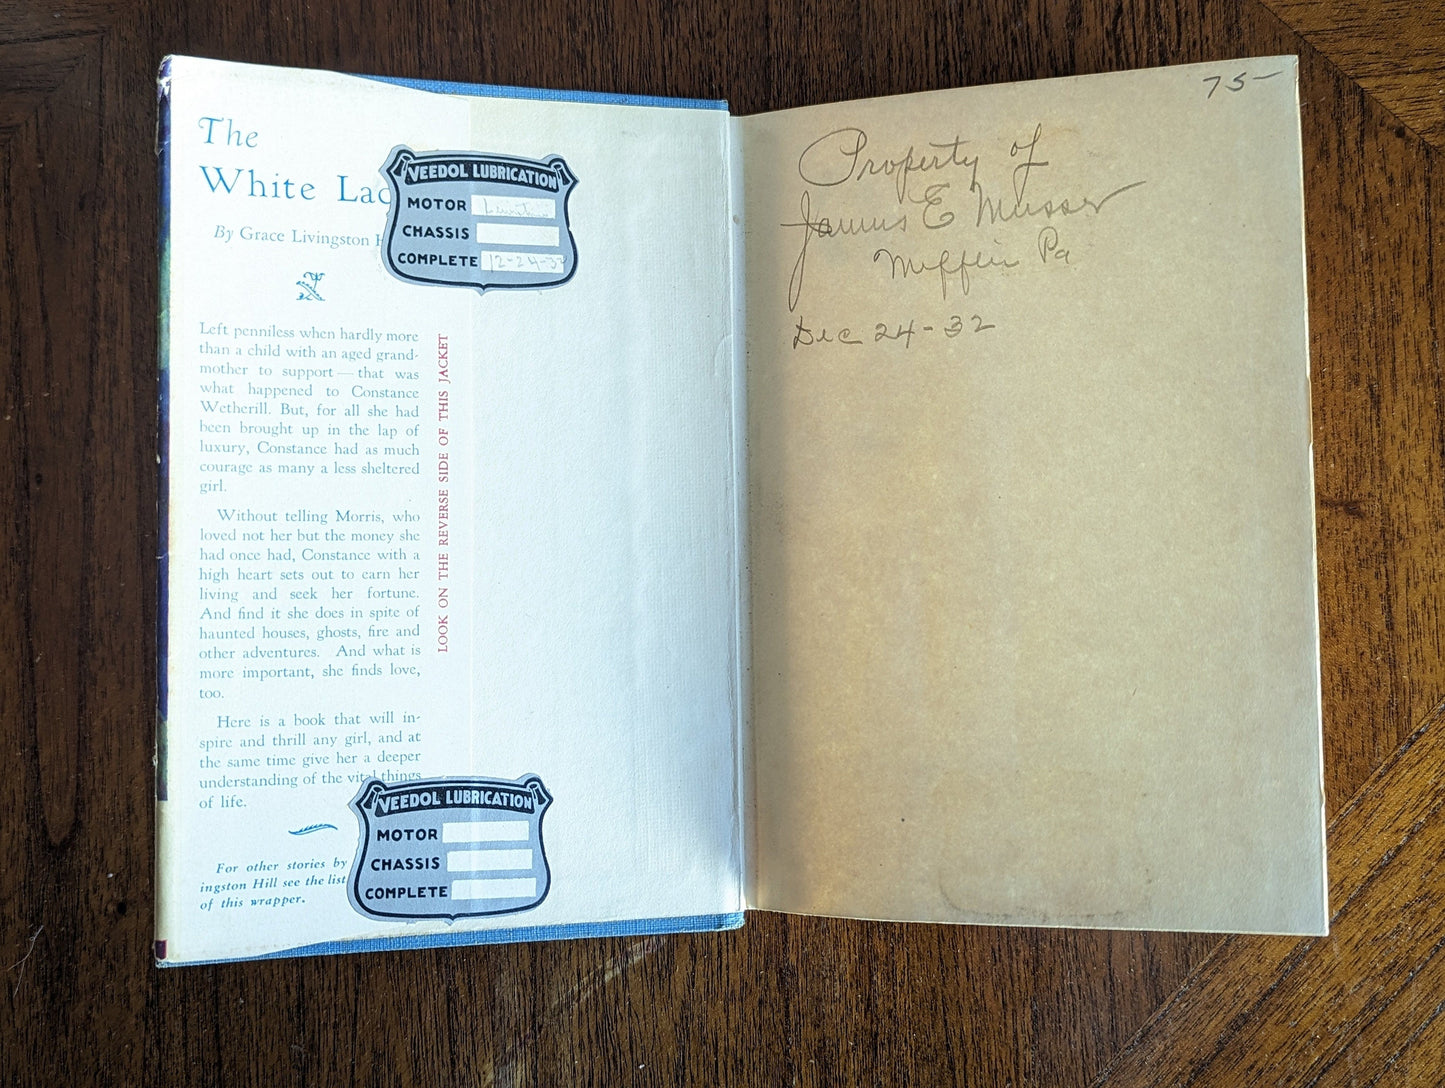 The
White
By Grace Livingston
Left penniless when hardly more
than a child with an aged grand-
mother to support — that was
what happened to Constance
Wetherill. But, for all she had
been brought up in the lap of
luxury, Constance had as much
courage as many a less sheltered
girl.
Without telling Morris, who
loved not her but the money she
had once had, Constance with a
high heart sets out to earn her
living and seek her fortune.
And find it she does in spite of
haunted houses, ghosts, fire and
other adventures. And what is
more important, she finds love,
too.
Here is a book that will in-
spire and thrill any girl, and at
the same time give her a deeper
understanding of the vital things
of life.
For other stories by
ingston Hill see the list
of this wrapper.
LOOK ON THE REVERSE SIDE OF THIS JACKET
VEEDOL LUBRICATION
MOTOR
CHASSIS
COMPLETE 12-24-32
VEEDOL LUBRICATION
MOTOR
CHASSIS
COMPLETE
75-
Property of
E Musser
Mifflin Pa
Dec 24-32